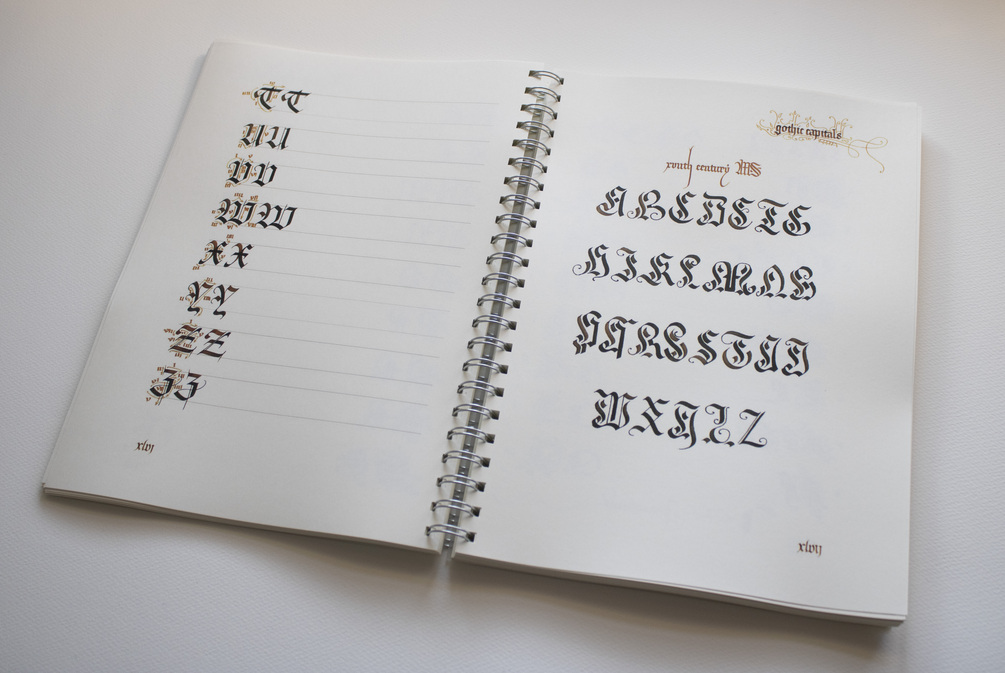 T T
U U
V V
W W
X X
Y Y
Z Z
Z Z
xlvj
gothic capitals
xvuth century MS
A B C D E F G
H I J K L M N O
P Q R S S T U V
W X Y Z Z
xlvij